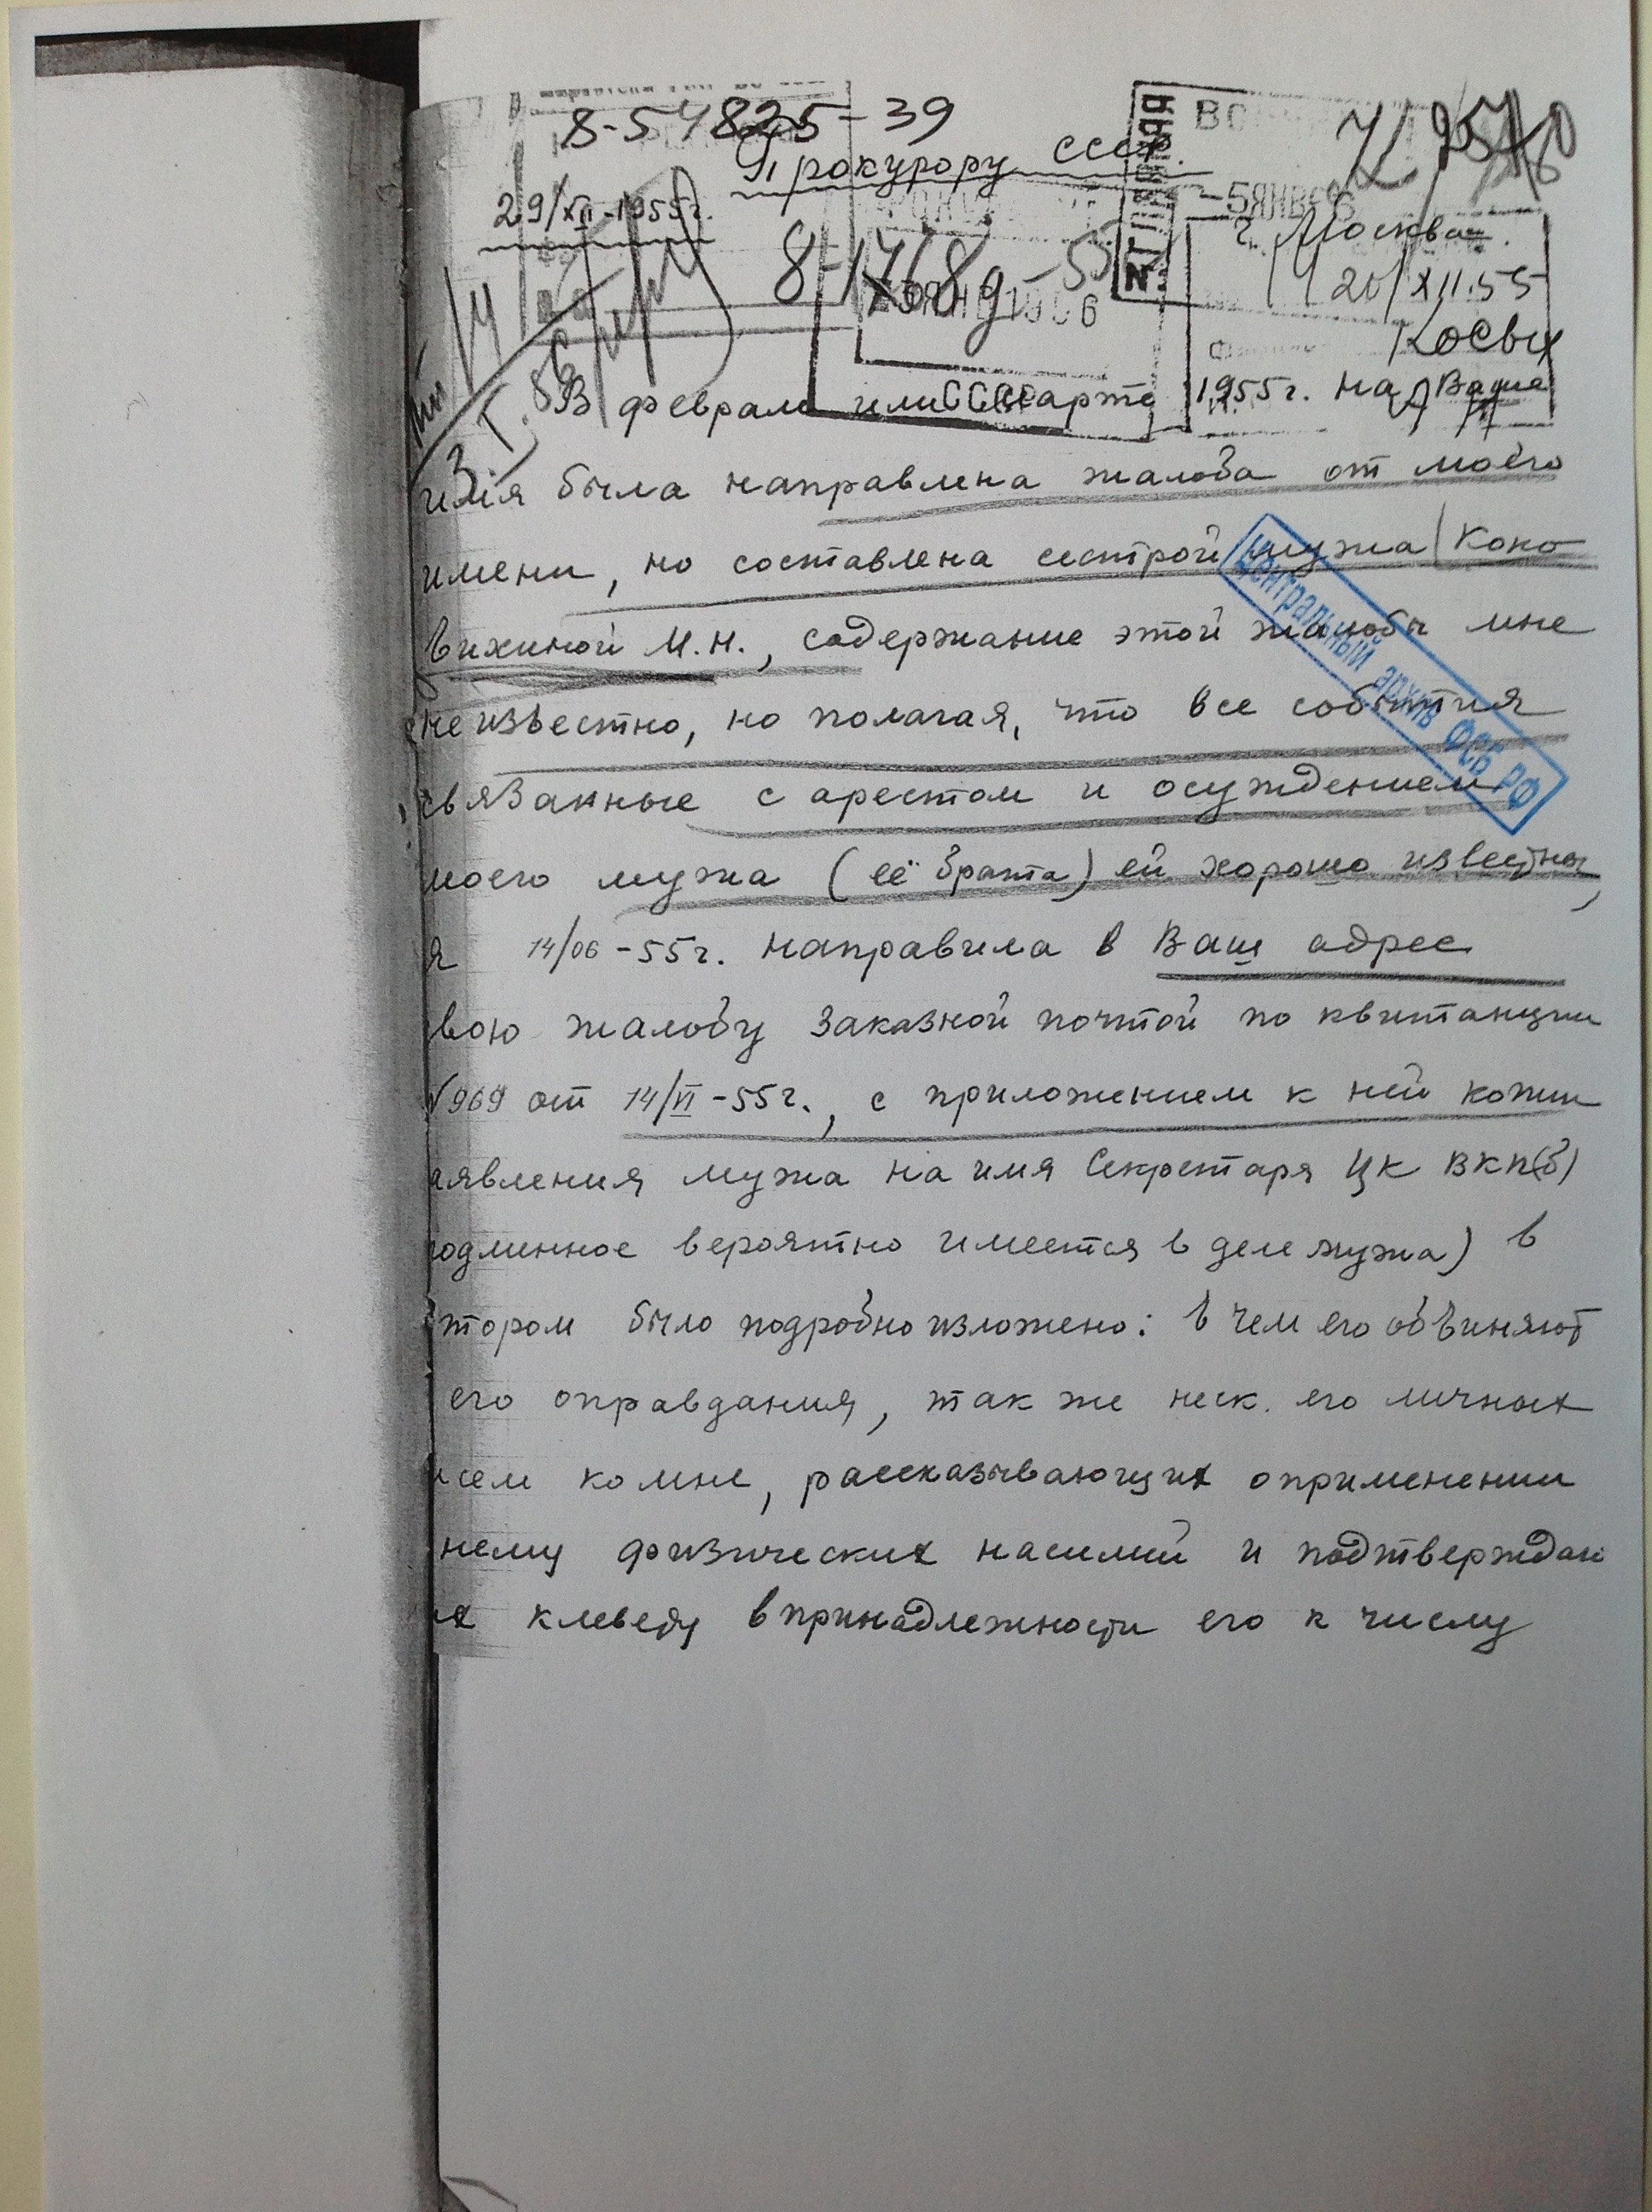 8-54825-39
Прокурору СССР.
29/XII-1955г.
-5 ЯНВ
г. Москва.
8-17689-55
№
20/XII.55
В феврале или марте 1955г. на Ваше
имя была направлена жалоба от моего
имени, но составлена сестрой мужа Коко
вихиной М.Н., содержание этой жалобы мне
неизвестно, но полагая, что все события
связанные с арестом и осуждением
моего мужа (её брата) ей хорошо известны,
я 14/06-55г. направила в Ваш адрес
вою жалобу заказной почтой по квитанции
969 от 14/VI-55г., с приложением к ней копии
аявления мужа на имя Секретаря ЦК ВКП(б)
одлинное вероятно имеется в деле мужа) в
тором было подробно изложено: в чем его обвиняют
его оправдания, так же неск. его личных
исем ко мне, рассказывающих о применении
нему физических насилий и подтверждаю
их клевету в принадлежности его к числу
Центральный архив ФСБ РФ